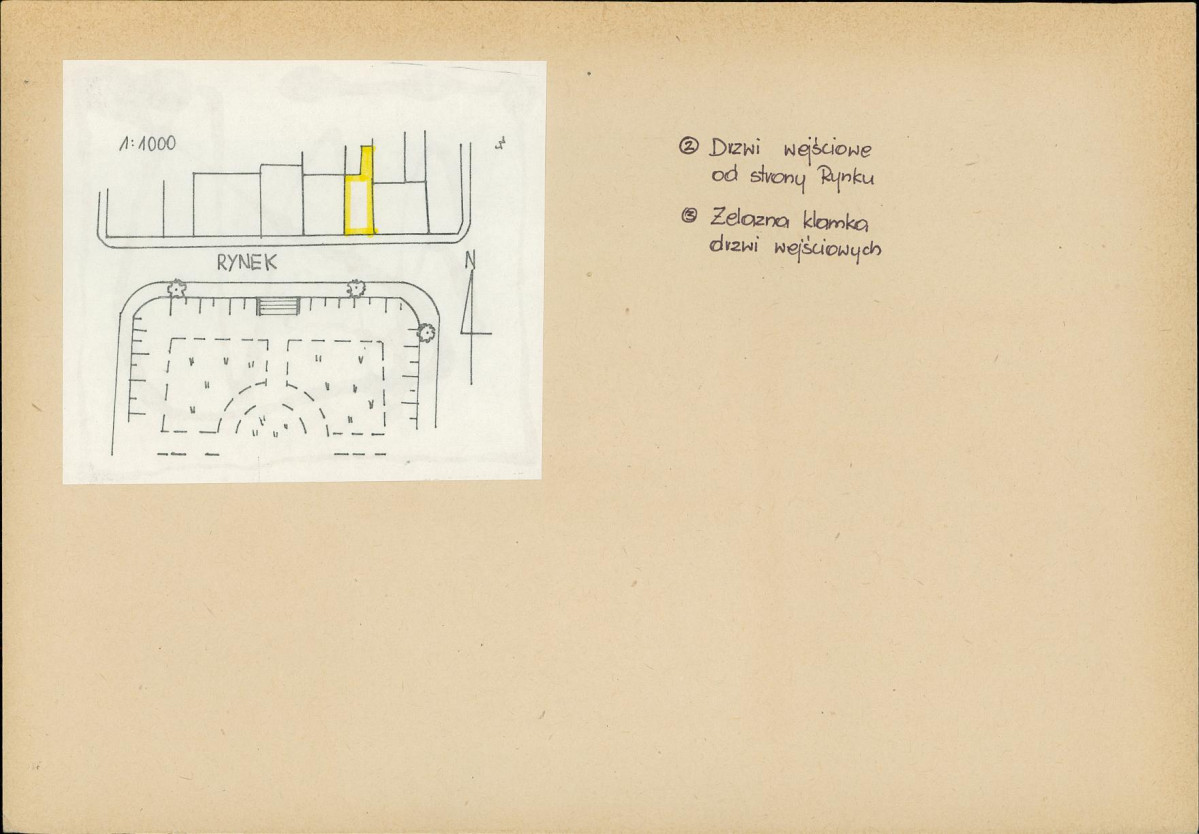 1:1000
RYNEK
N
② Drzwi wejściowe
od strony Rynku
③ Żelazna klamka
drzwi wejściowych